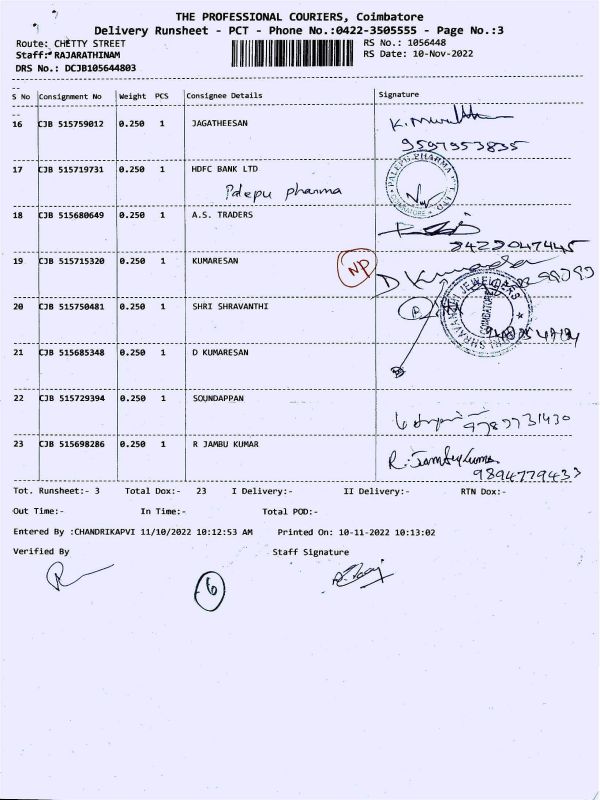 THE PROFESSIONAL COURIERS, Coimbatore
Delivery Runsheet - PCT - Phone No.:0422-3505555 - Page No.:3
Route: CHETTY STREET RS No.: 1056448
Staff: RAJARATHINAM RS Date: 10-Nov-2022
DRS No.: DCJB105644803
S No Consignment No Weight PCS Consignee Details Signature
16 CJB 515759012 0.250 1 JAGATHEESAN
9597953835
17 CJB 515719731 0.250 1 HDFC BANK LTD
Palepu pharma
PALEPU PHARMA PVT. LTD
COIMBATORE
18 CJB 515680649 0.250 1 A.S. TRADERS
19 CJB 515715320 0.250 1 KUMARESAN NP
20 CJB 515750481 0.250 1 SHRI SHRAVANTHI
COIMBATORE
21 CJB 515685348 0.250 1 D KUMARESAN
22 CJB 515729394 0.250 1 SOUNDAPPAN
9789731430
23 CJB 515698286 0.250 1 R JAMBU KUMAR
R. Jambukumar
9894779433
Tot. Runsheet:- 3 Total Dox:- 23 I Delivery:- II Delivery:- RTN Dox:-
Out Time:- In Time:- Total POD:-
Entered By :CHANDRIKAPVI 11/10/2022 10:12:53 AM Printed On: 10-11-2022 10:13:02
Verified By Staff Signature
6